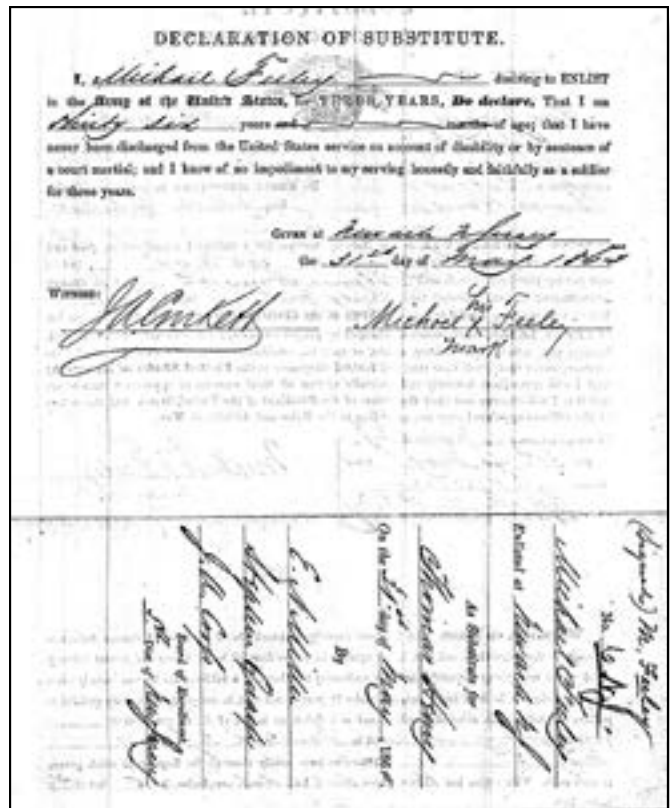 DECLARATION OF SUBSTITUTE.
I, Michael Feeley desiring to ENLIST
in the Army of the United States, for THREE YEARS, Do declare, That I am
thirty six years and months of age; that I have
never been discharged from the United States service on account of disability or by sentence of
a court martial; and I know of no impediment to my serving honestly and faithfully as a soldier
for three years.
Given at Newark N Jersey
the 31st day of May 1864
Witness:
his
Michael X Feeley
mark
(Signed) M. Feeley
No.
Michael Feeley
Enlisted at Newark NJ
As Substitute for
Thomas
On the 31st day of May, 1864
By
E.
Stephen
J. A.
Board of Enrollment
5th Dist of New Jersey